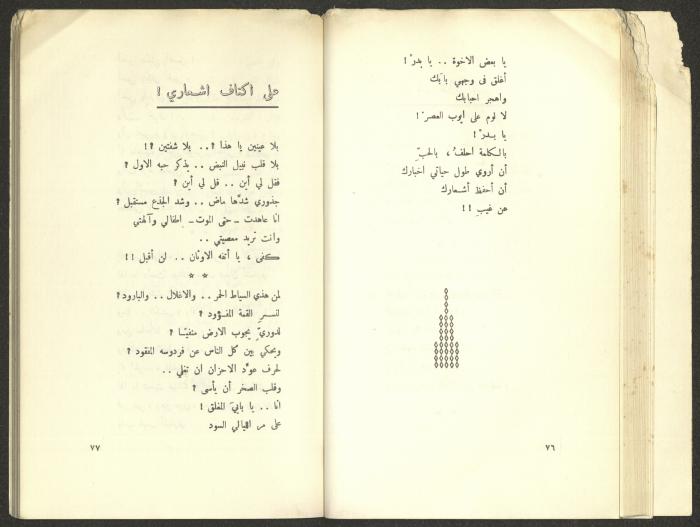 يا بعض الاخوة .. يا بدرْ !
أغلق فى وجهي بابَك
واهجر احبابك
لا لوم على أيوب العصرْ !
يا بـدرْ !
بالكلمة احلفُ ، بالحبِّ
أن أروي طول حياتي اخبارك
أن أحفظ أشعارك
عن غيبِ !!
٧٦
على اكتاف اشعاري !
بلا عينين يا هذا ؟ .. بلا شفتين ؟!
بلا قلب نبيل النبض .. يذكر حبه الاول ؟
فقل لي أين .. قل لي أين ؟
جذوري شدَّها ماض .. وشد الجذع مستقبل ؟
انا عاهدت ـ حتى الموت ـ اطفالي وآلهتي
وانت تريد معصيتي ..
كفى ، يا أتفه الاوثان .. لن أقبل !!
* *
لمن هذي السياط الحمر .. والاغلال .. والبارود ؟
لنسـر القمة المفـؤود ؟
لدوريٍّ يجوب الارض منفيّـا ؟
ويحكي بين كل الناس عن فردوسه المفقود ؟
لحرف عوَّد الاحزان ان تغلي ..
وقلب الصخر أن يأسى ؟
انا .. يا بابيَ المغلق !
على مر الليالي السود
٧٧